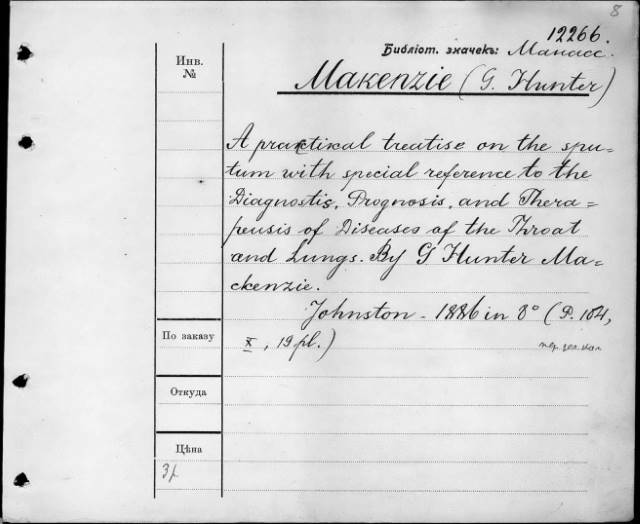 8
12266.
Инв.
№
Библіот. значекъ: Манасс.
Makenzie (G. Hunter)
A prakctikal treatise on the spu=
tum with special reference to the
Diagnostis, Prognosis, and Thera=
peusis of Diseases of the Throat
and Lungs. By G Hunter Ma=
ckenzie.
Johnston - 1886 in 8° (P. 104,
По заказу
X, 19 pl.)
Откуда
Цѣна
3р